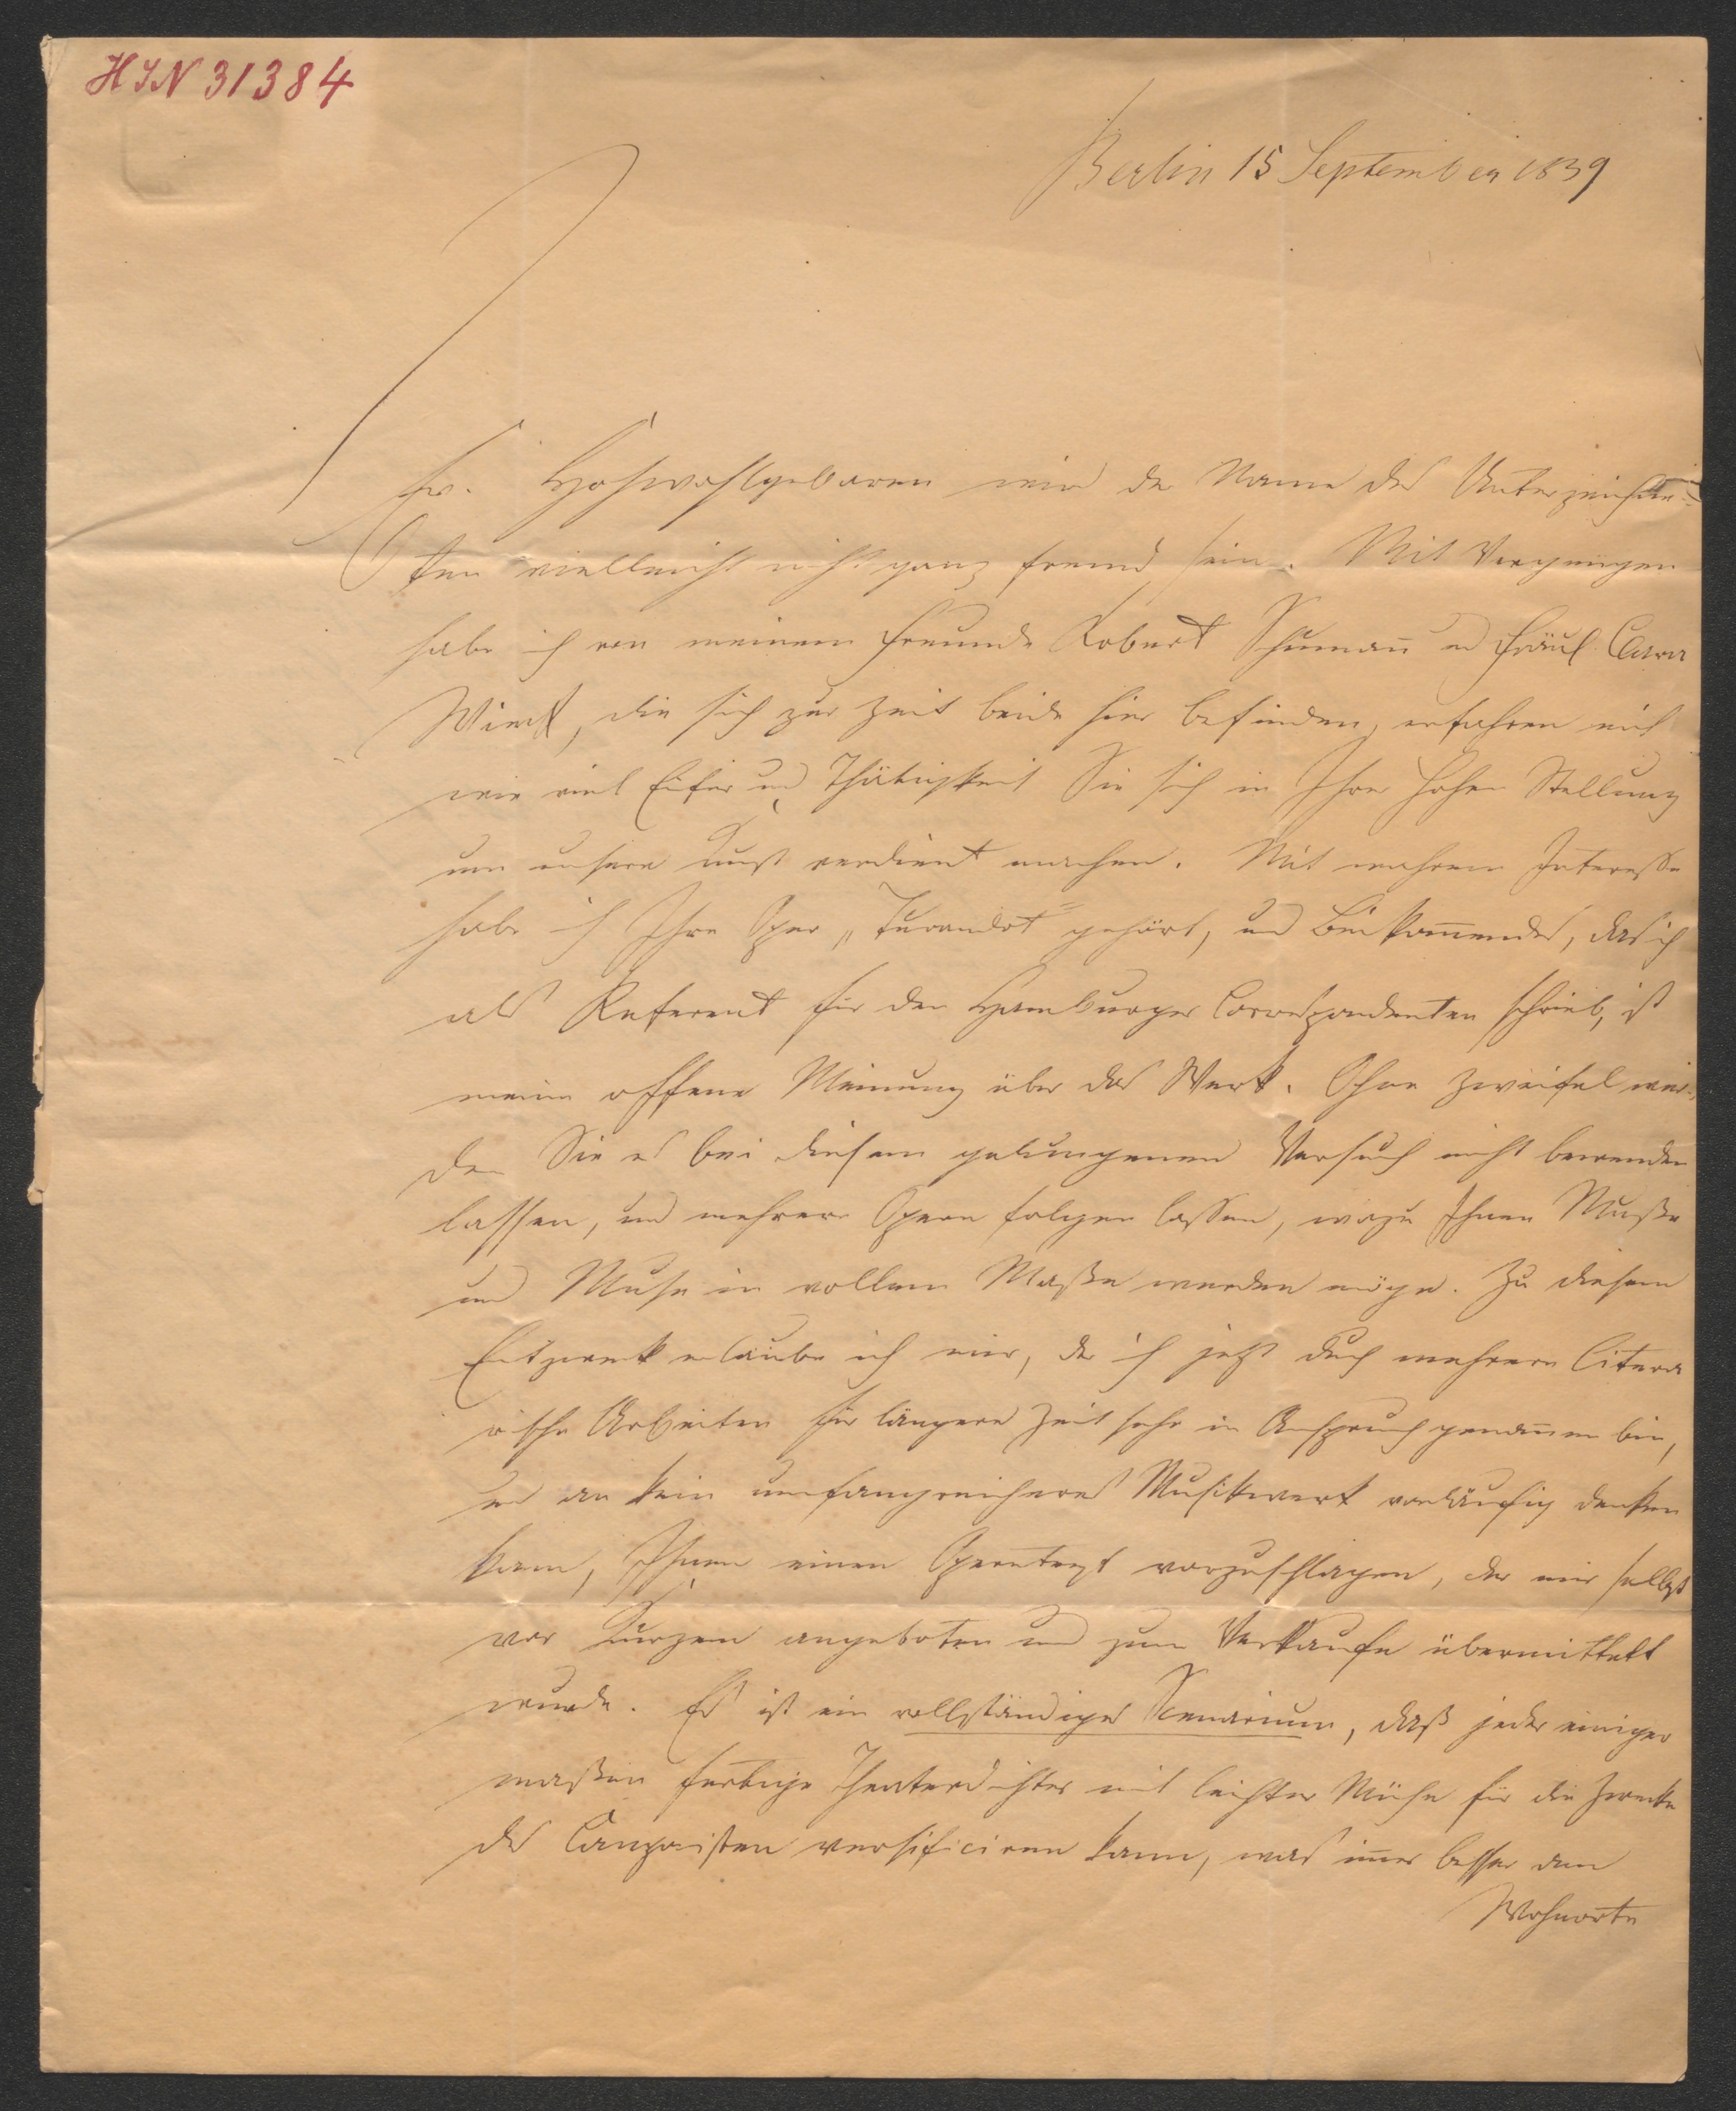 HIN 31384
Berlin 15 September 1839
Ew. Hochwohlgeboren wird der Name des Unterzeichne-
ten vielleicht nicht ganz fremd sein. Mit Vergnügen
habe ich von meinem Freunde Robert Schuman̄ und Fräul. Clara
Wieck, die sich zur Zeit beide hier befinden, erfahren mit
wie viel Eifer und Thätigkeit Sie sich in Ihrer hohen Stellung
um unsere Kunst verdient machen. Mit wahrem Interesse
habe ich Ihre Oper „Turandot" gehört, und Beikom̄endes, das ich
als Referent für den Hamburger Correspondenten schrieb, ist
meine offene Meinung über das Werk. Ohne Zweifel wer-
den Sie es bei diesem gelungenen Versuch nicht bewenden
lassen, und mehrere Opern folgen lassen, wozu Ihnen Muße
und Muse in vollem Maße werden möge. Zu diesem
Endzweck erlaube ich mir, der ich jetzt durch mehrere litera
rische Arbeiten für längere Zeit sehr in Anspruch genom̄en bin,
und an kein umfangreicheres Musikwerk vorläufig denken
kann, Ihnen einen Operntext vorzuschlagen, der mir selbst
vor Kurzem angeboten und zum Verkaufe übermittelt
wurde. Es ist ein vollständiges Scenarium, daß jeder einiger
maßen fertige Theaterdichter mit leichter Mühe für die Zwecke
des Componisten versificiren kann, was im̄er besser am
Wohnorte